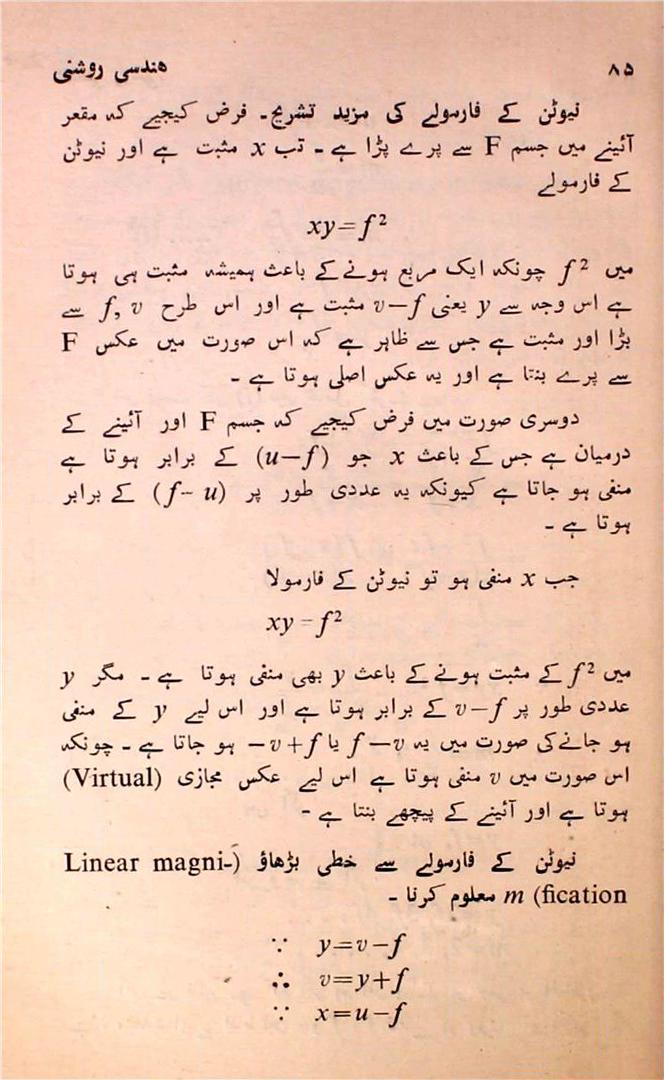 ۸۵
هندسی روشنی
نیوٹن کے فارمولے کی مزید تشریح۔ فرض کیجیے کہ مقعر
آئینے میں جسم F سے پرے پڑا ہے ۔ تب x مثبت ہے اور نیوٹن
کے فارمولے
xy=f²
میں f² چونکہ ایک مربع ہونے کے باعث ہمیشہ مثبت ہی ہوتا
ہے اس وجہ سے y یعنی v−f مثبت ہے اور اس طرح f, v سے
بڑا اور مثبت ہے جس سے ظاہر ہے کہ اس صورت میں عکس F
سے پرے بنتا ہے اور یہ عکس اصلی ہوتا ہے ۔
دوسری صورت میں فرض کیجیے کہ جسم F اور آئینے کے
درمیان ہے جس کے باعث x جو (u−f) کے برابر ہوتا ہے
منفی ہو جاتا ہے کیونکہ یہ عددی طور پر (f−u) کے برابر
ہوتا ہے ۔
جب x منفی ہو تو نیوٹن کے فارمولا
xy=f²
میں f² کے مثبت ہونے کے باعث y بھی منفی ہوتا ہے ۔ مگر y
عددی طور پر v−f کے برابر ہوتا ہے اور اس لیے y کے منفی
ہو جانے کی صورت میں یہ f−v یا −v+f ہو جاتا ہے ۔ چونکہ
اس صورت میں v منفی ہوتا ہے اس لیے عکس مجازی (Virtual)
ہوتا ہے اور آئینے کے پیچھے بنتا ہے ۔
نیوٹن کے فارمولے سے خطی بڑھاؤ (Linear magni-
fication) m معلوم کرنا ۔
∵ y=v−f
∴ v=y+f
∵ x=u−f